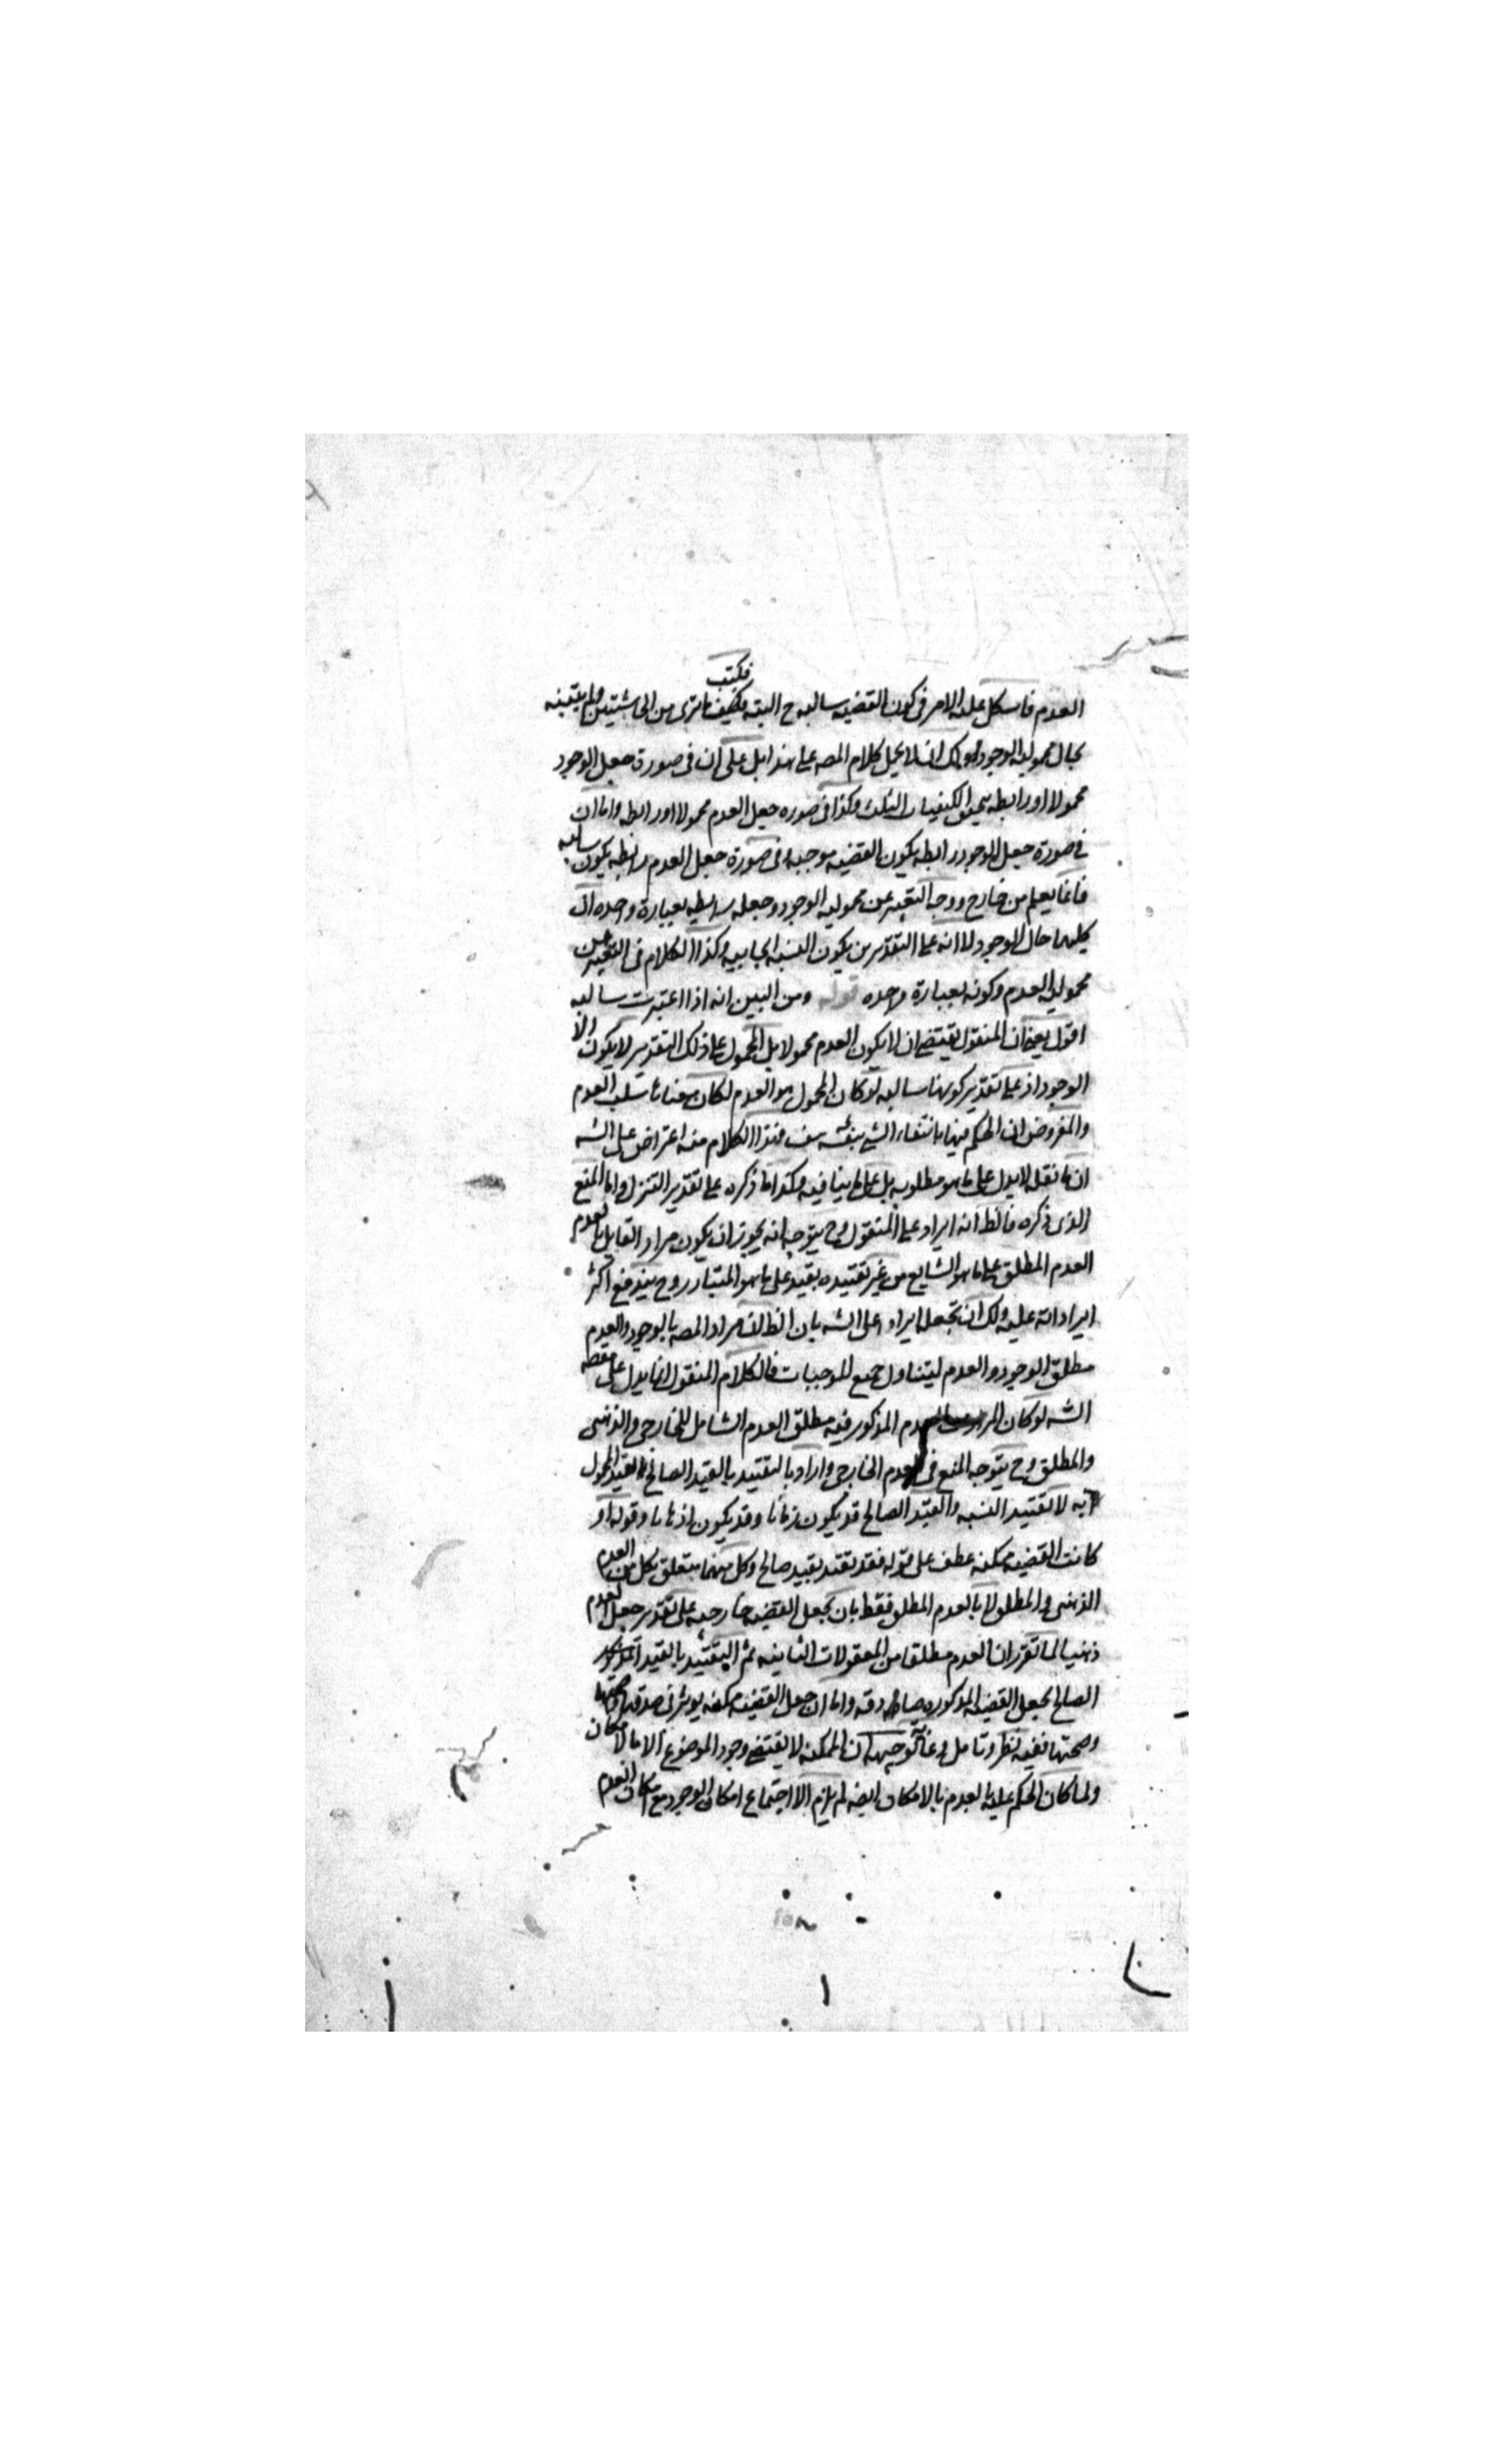 فكتب
العدم فاشكل عليه الامر فى كون القضيه سالبه ح البته فكيف ما ترى من الحاشيتين ولم يتعينه
بحال محموليه الوجود ولك ان لا يحمل كلام المصه على هذا بل على ان فى صورة جعل الوجود
محمولا او رابطه يتحقق الكيفيات الثلث وكذا فى صوره جعل العدم محمولا او رابطه واما ان
فى صورة جعل الوجود رابطه يكون القضيه موجبه وفى صورة جعل العدم رابطه يكون سالبه
فانما يعلم من خارج ووجه التعبير عن محموليه الوجود وجعله رابطه بعبارة وحده ان
كليهما حال الوجود لا انه على التقديرين يكون النسبه ايجابيه وكذا الكلام فى التعبير عن
محموليه العدم وكونه بعبارة وحده قوله ومن البين انه اذا اعتبرت سالبه
اقول يعنى ان المنقول يقتضى ان لا يكون العدم محمولا بل المحمول على ذلك التقدير لا يكون الا
الوجود اذ على تقدير كونها سالبه لو كان المحمول هو العدم لكان معناها سلب العدم
والمفروض ان الحكم فيها بانتفاء الشى بنفسه هف فهذا الكلام منه اعتراض على الشه
ان ما نقله لا يدل على ما هو مطلوبه بل على ما ينافيه وكذا ما ذكره على تقدير التنزل واما المنع
الذى ذكره فالظ انه ايراد على المنقول وح يتوجه انه يجوز ان يكون مراد القايل بالعدم
العدم المطلق على ما هو الشايع من غير تقييده بقيد على ما هو المتبادر وح يندفع اكثر
ايراداته عليه ولك ان تجعله ايراد على الشه بان الظ ان مراد المصه بالوجود والعدم
مطلق الوجود والعدم ليتناول جميع الموجبات فالكلام المنقول انما يدل على مقصه
الشه لو كان المراد بالعدم المذكور فيه مطلق العدم الشامل للخارجى والذهنى
والمطلق وح يتوجه المنع فى العدم الخارجى واراد بالتقييد بالقيد الصالح تقييد المحمول
به لا تقييد النسبه والقيد الصالح قد يكون زمانا وقد يكون اذهانا وقوله او
كانت القضيه ممكنه عطف على قوله فقد تقيد بقيد صالح وكل منهما متعلق بكل من العدم
الذهنى والمطلق لا بالعدم المطلق فقط بان يجعل القضيه خارجيه على تقدير جعل العدم
ذهنيا لما تقرر ان العدم مطلقا من المعقولات الثانيه ثم التقييد بالقيد
الصالح يجعل القضيه المذكوره صادقه واما ان جعل القضيه ممكنه يوثر فى صدقها
وصحتها ففيه نظر وتامل وغاية توجيهه ان الممكنه لا يقتضى وجود الموضوع الا بالامكان
ولما كان الحكم عليه بالعدم بالامكان ايضه لم يلزم الا اجتماع امكان الوجود مع امكان العدم